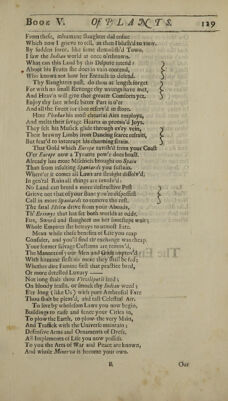 BOOK V. Of PLANTS. 129
From these, inhumane slaughter did ensue
Which now I grieve to tell, as then I blush'd to view.
By hidden force, like some demolish'd Town,
Saw the Indian world at once o'rethrown.
What can this Land by this Dispute intend
About his Fruits the doer in vain contend,
Who knows not how her Entrails to defend.
Thy Slaughters past, do thou at length forget
For with no small Revenge thy wrongs have met,
And Heav'n will give thee greater Comforts yet.
Enjoy thy fate whose bitter Part is o'er
And all the sweet for thee reserv'd in store.
Here Phœbus his most chearful Airs employs,
And melts their savage Hearts in promis'd Joys.
They feel his Musick glide through ev'ry vein,
Their brawny Limbs from Dancing scarce refrain,
But fear'd to interrupt his charming strain.
That Gold which Europe ravish'd from your Coast
O'er Europe now a Tyrants pow'r does boast.
Already has more Mischiefs brought on Spain
Than from insulting Spaniards you sustain.
Where'er it comes all Laws are straight dissolv'd,
In general Ruin all things are involv'd.
No Land can breed a more destructive Pest
Grieve not that of your Bane you're dispossest
Call in more Spaniards to remove the rest.
The fatal Helen drive from your Abroads,
Tis' Erinnys that has set both worlds at odds.
Fire, Sword and slaughter on her footsteps wait;
Whole Empires she betrays to utmost Fate.
Mean while these benefits of Life you reap
Consider, and you'll find th' exchange was cheap.
Your former salvage Customs are remov'd;
The Manners of your Men and Gods improv'd.
With humane flesh no more they shall be fed;
Whether dire Famine first that practice bred,
Or more detested Luxury ——
Not long shall thou
On bloody feasts, or smoak thy Indian weed;
Ere long (like Us') with pure Ambrosial Fare
Thou shalt be pleas'd, and tast Celestial Air.
To live by wholesom Laws you now begin,
Buildings to raise and fence your Cities in,
To plow the Earth, to plow the very Main,
And Traffick with the Universe maintain;
Defensive Arms and Ornaments of Dress,
All Implements of Life you now possess.
To you the Arts of War and Peace are known,
And whole Minerva is become your own.
R Our